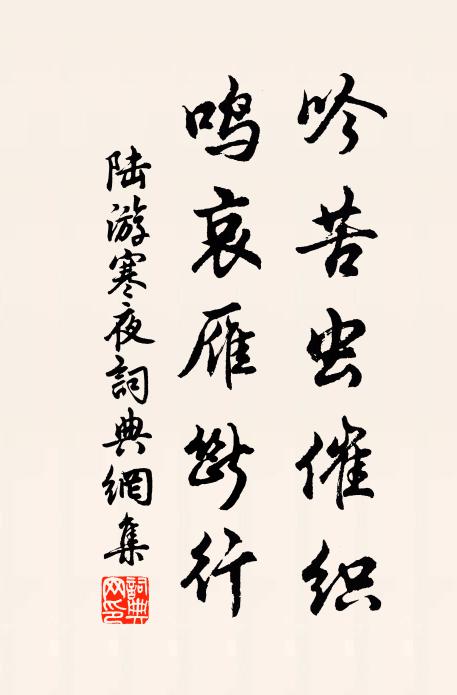 吟苦虫催织
鸣哀雁断行
陆游寒夜詞典網集
詞典网印